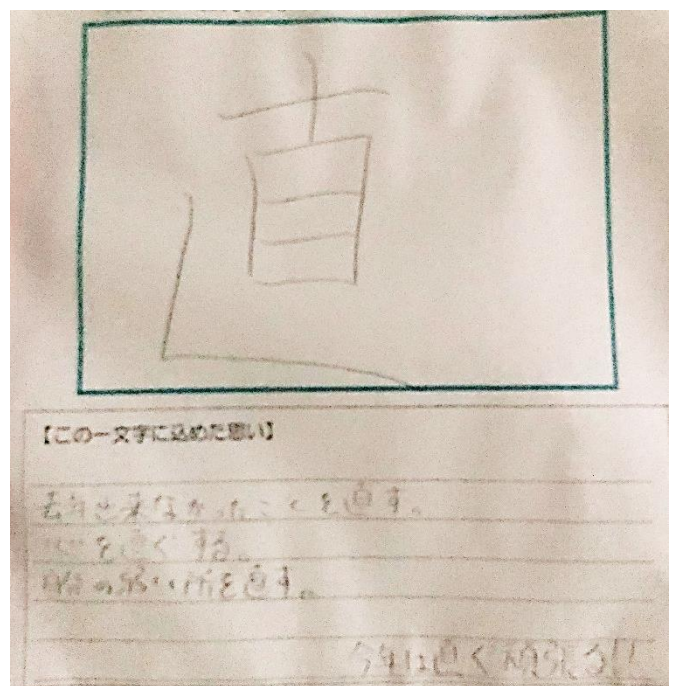 直
【この一文字に込めた思い】
去年出来なかったことを直す。
心を直ぐする。
自分の弱い所を直す。
今年は直く頑張る!!